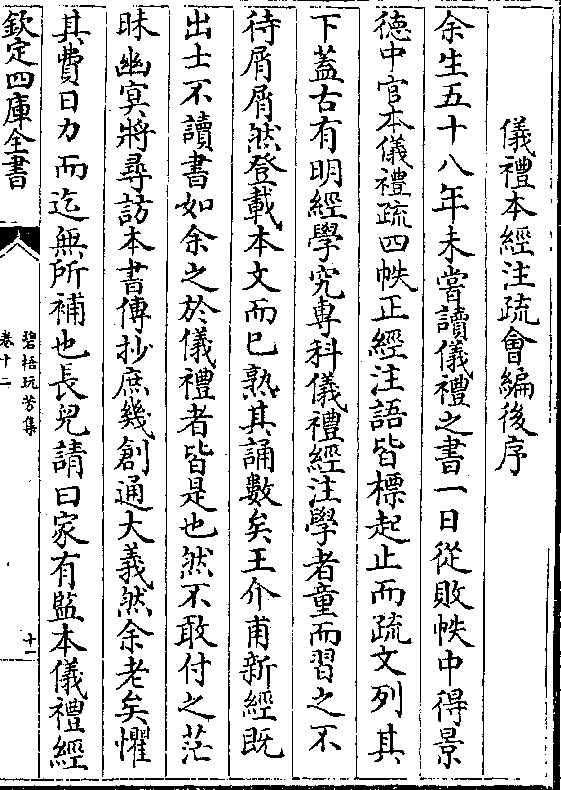 儀禮本經注疏會編後序
余生五十八年未嘗讀儀禮之書一日從敗帙中得景
德中官本儀禮疏四帙正經注語皆標起止而疏文列其
下蓋古有明經學究專科儀禮經注學者童而習之不
待屑屑然登載本文而已熟其誦數矣王介甫新經既
出士不讀書如余之於儀禮者皆是也然不敢付之茫
昧幽冥將尋訪本書傳抄庶幾創通大義然余老矣懼
其費日力而迄無所補也長兒請曰家有監本儀禮經
欽定四庫全書
碧梧玩芳集
卷十二
十一